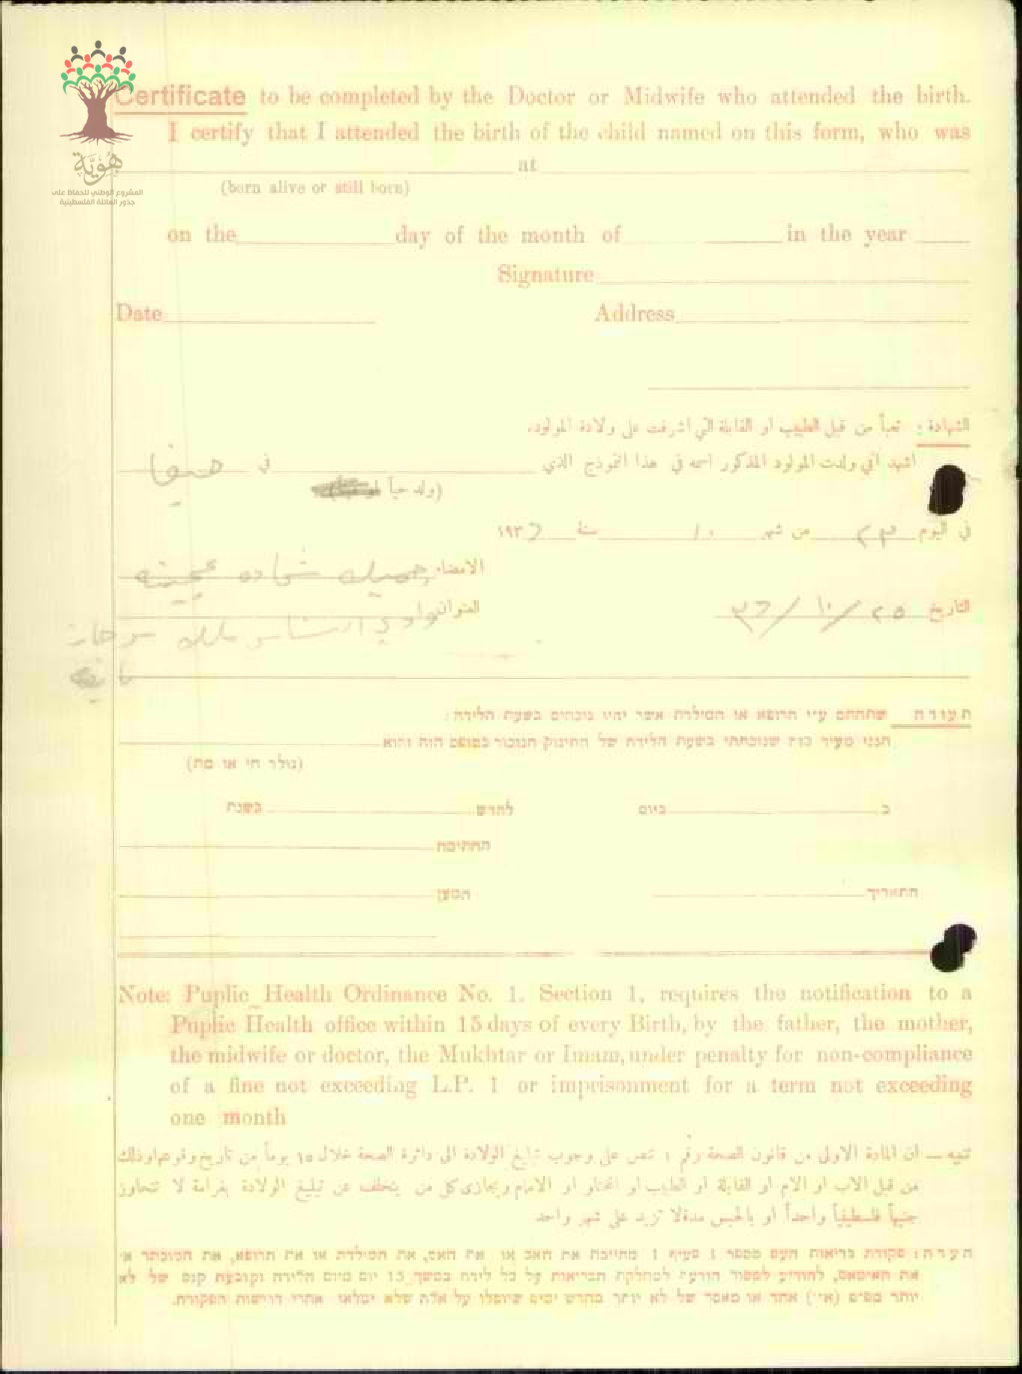 هُوِيَّة
المشروع الوطني للحفاظ على
جذور العائلة الفلسطينية
Certificate to be completed by the Doctor or Midwife who attended the birth.
I certify that I attended the birth of the child named on this form, who was
at
(born alive or still born)
on the day of the month of in the year
Signature
Date Address
الشهادة : تعبأ من قبل الطبيب او القابلة التي اشرفت على ولادة المولود.
اشهد اني ولدت المولود المذكور اسمه في هذا النموذج الذي في حيفا
(ولد حياً
في اليوم ٢٣ من شهر ١٠ سنة ١٩٣٦
الامضاء جميله شحاده
التاريخ ٢٥/١٠/٣٦ العنوان وادي النسناس ملك
תעודה שתחתם ע״י הרופא או המילדת אשר יהיו נוכחים בשעת הלידה:
הנני מעיד בזה שנוכחתי בשעת הלידה של התינוק הנזכר בטופס הזה והוא
(נולד חי או מת)
ב ביום לחדש בשנת
החתימה
התאריך המען
Note: Puplic Health Ordinance No. 1. Section 1, requires the notification to a
Puplic Health office within 15 days of every Birth, by the father, the mother,
the midwife or doctor, the Mukhtar or Imam, under penalty for non-compliance
of a fine not exceeding L.P. 1 or imprisonment for a term not exceeding
one month
تنبيه — ان المادة الاولى من قانون الصحة رقم ١ تنص على وجوب تبليغ الولادة الى دائرة الصحة خلال ١٥ يوماً من تاريخ وقوعها وذلك
من قبل الاب او الام او القابلة او الطبيب او المختار او الامام ويجازى كل من يتخلف عن تبليغ الولادة بغرامة لا تتجاوز
جنيهاً فلسطينياً واحداً او بالحبس مدة لا تزيد على شهر واحد
הערה: פקודת בריאות העם מספר 1 סעיף 1 מחייבת את האב או את האם, את המילדת או את הרופא, את המוכתר או
את האימאם, להודיע למשרד הודעה למחלקת הבריאות על כל לידה במשך 15 יום מיום הלידה וקובעת קנס של לא
יותר מפ״ס (א״י) אחד או מאסר של לא יותר מחדש ימים שיוטלו על אלה שלא ימלאו אחרי דרישות הפקודה.